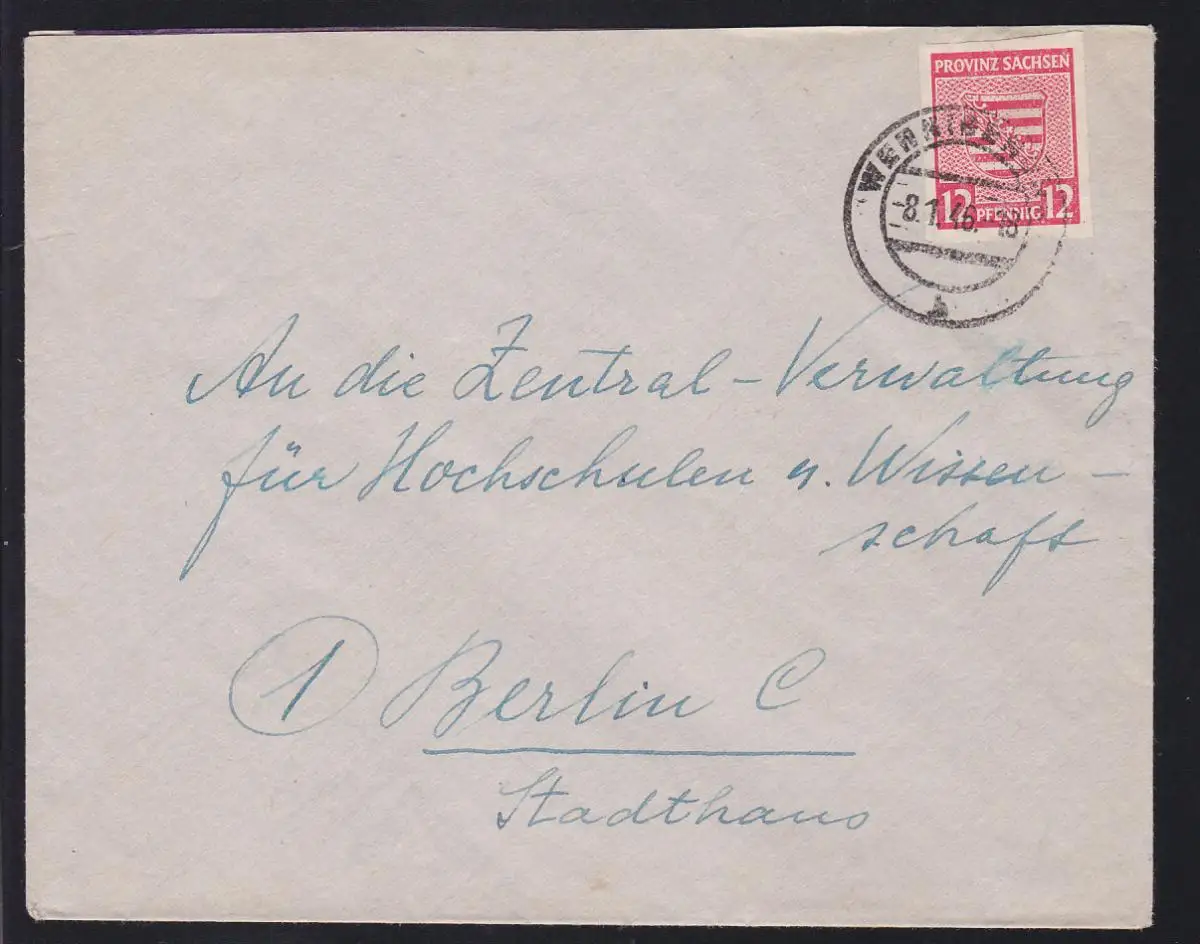 PROVINZ SACHSEN
12 PFENNIG 12
-8.1.46.-18
An die Zentral-Verwaltung
für Hochschulen u. Wissen-
schaft
1 Berlin C
Stadthaus